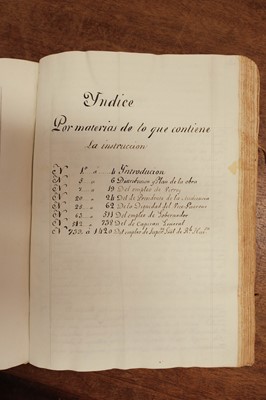 Yndice
Por materias de lo que contiene
La instruccion
Nº 1º a 4 Yntroducion
Nº 5 a 6 Distribucion y Plan de la obra
7 a 19 Del empleo de Virrey
20 a 24 Del de Presidente de la Audiencia
25 a 62 De la Dignidad del Vice-Patrono
63 a 511 Del empleo de Gobernador
512 a 738 Del de Capitan General
a 1420 Del empleo de